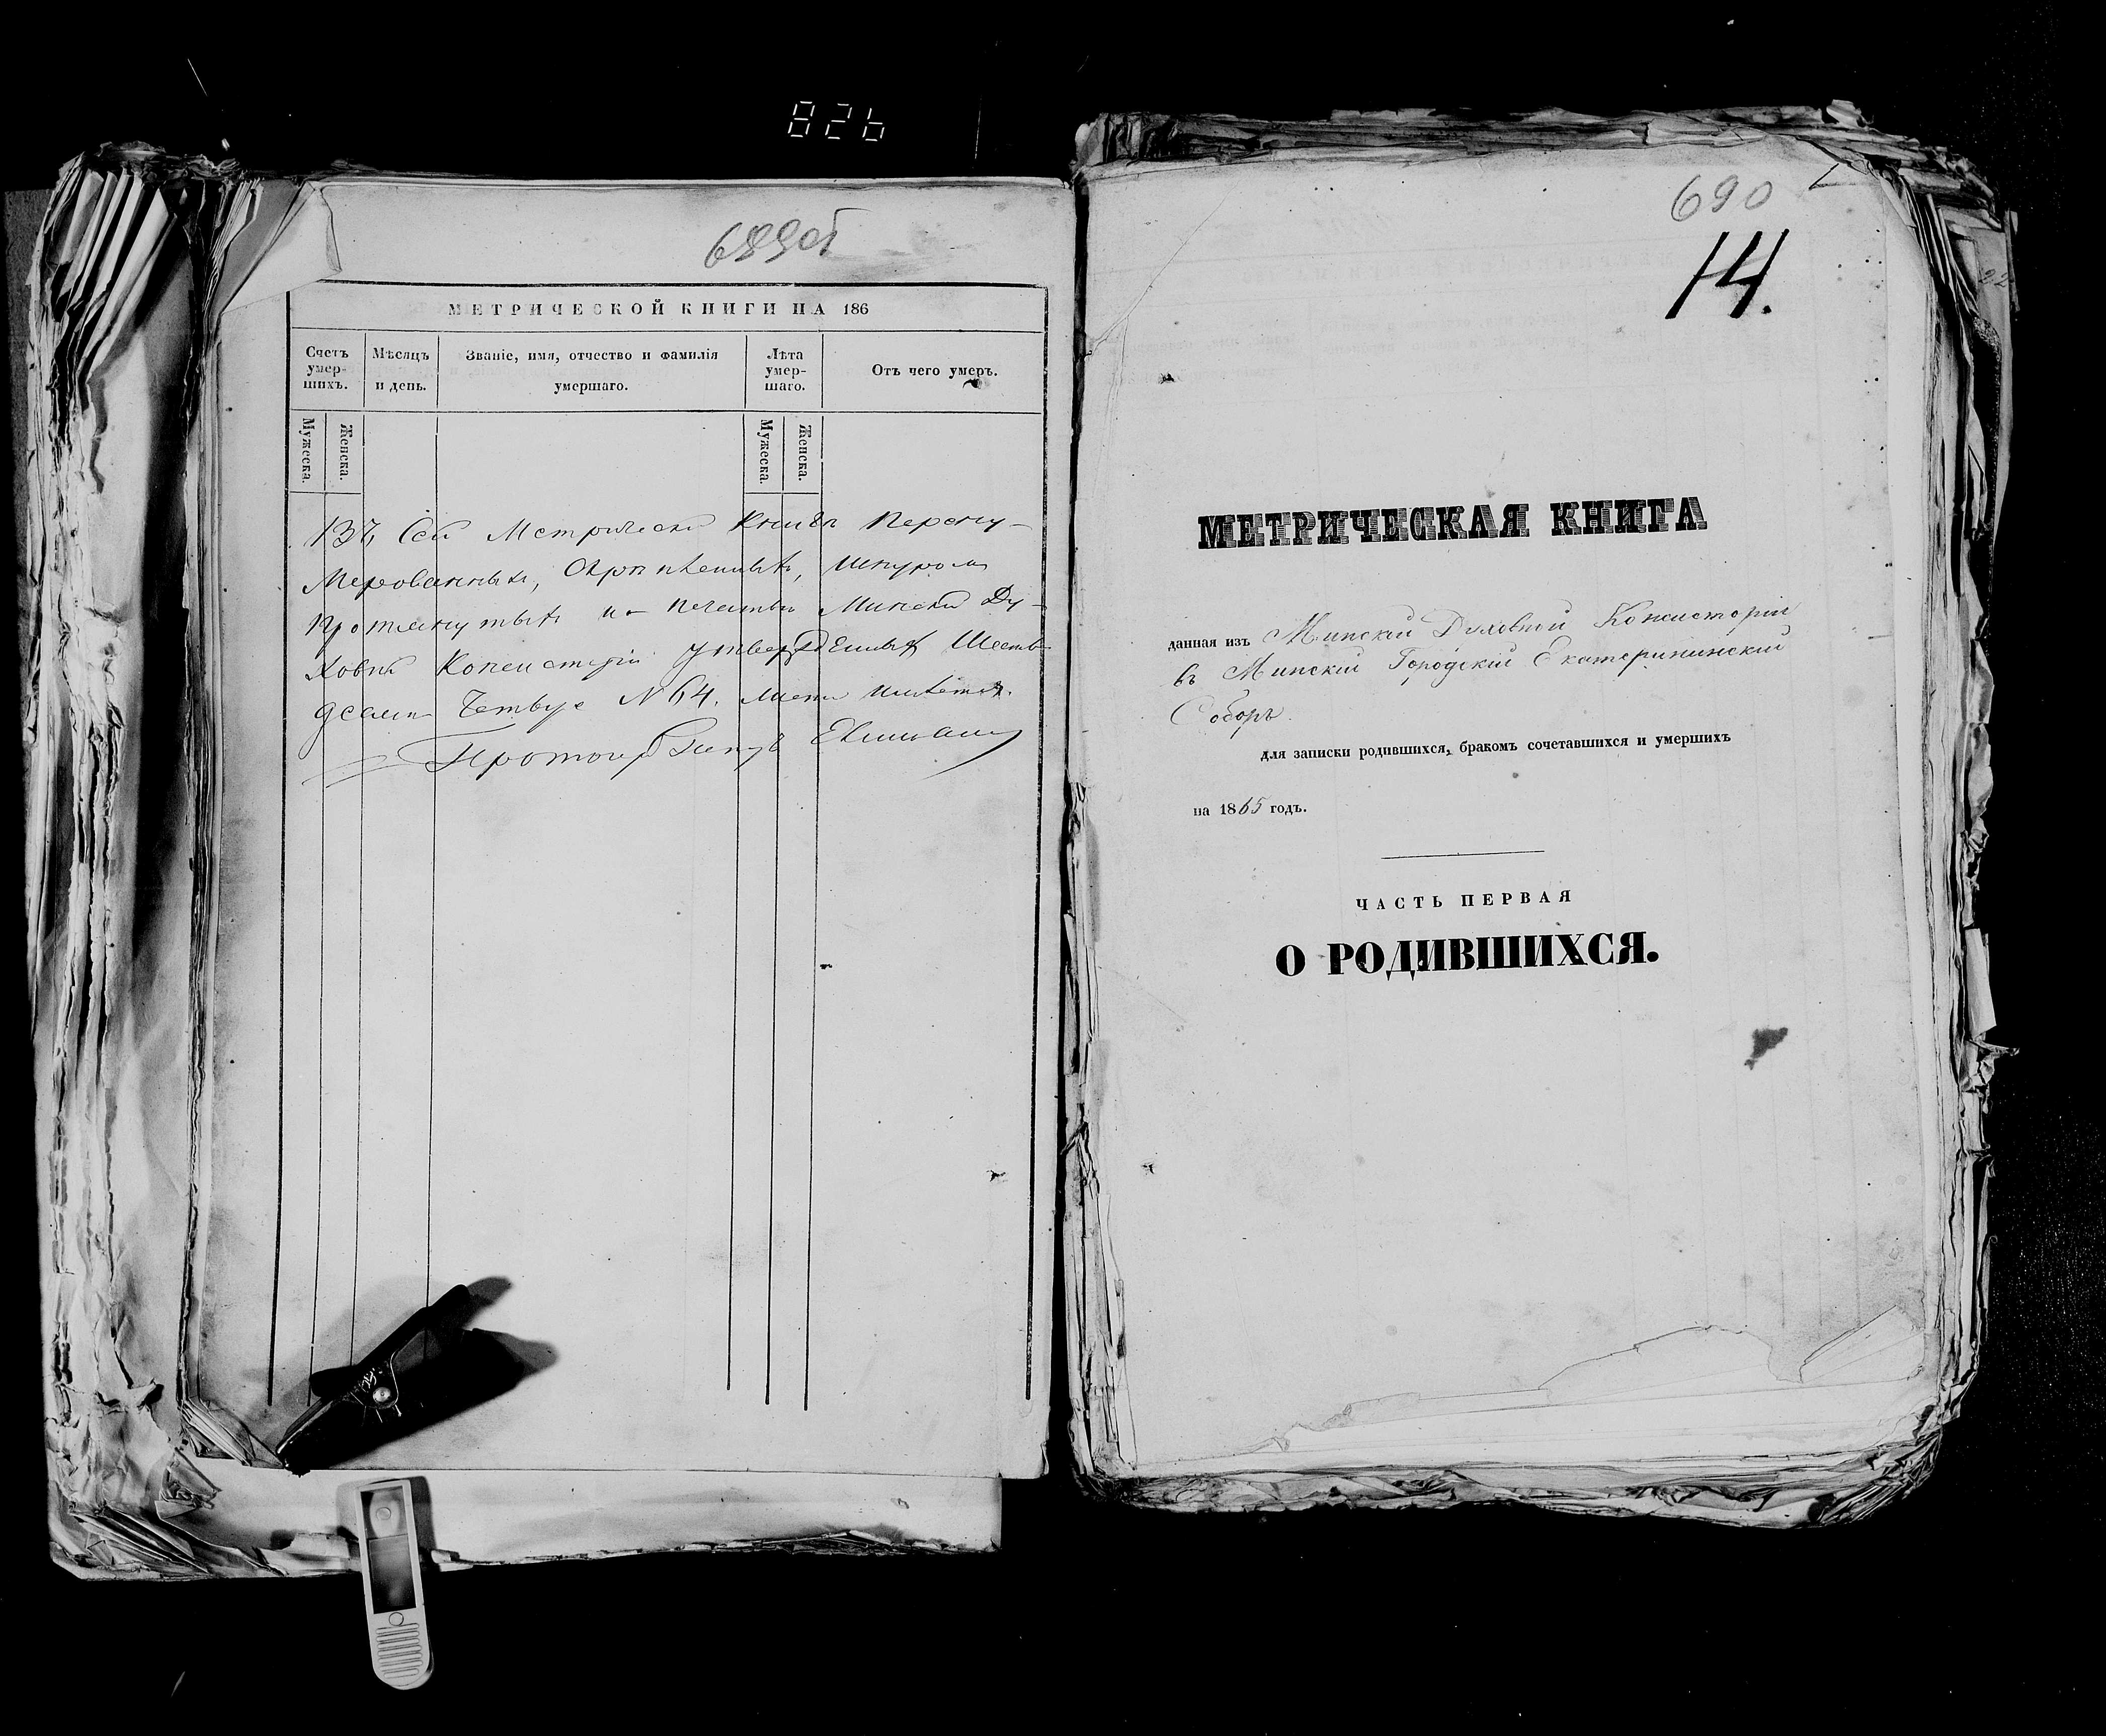 826
689об
МЕТРИЧЕСКОЙ КНИГИ НА 186
Счетъ умер-шихъ.
Мѣсяцъ и день.
Званіе, имя, отчество и фамилія умершаго.
Лѣта умер-шаго.
Отъ чего умеръ.
Мужеска.
Женска.
Мужеска.
Женска.
Въ Сей Метрической Книгѣ Перену-
мерованныхъ, Скрѣпленныхъ, Шнуромъ
Протянутыхъ и печатью Минской Ду-
ховной Консисторіи Утвержденныхъ Шесть
десятъ Четыре № 64. листа имѣется.
690
14.
МЕТРИЧЕСКАЯ КНИГА
данная изъ Минской Духовной Консисторіи
въ Минскій Городскій Екатерининскій
Соборъ.
для записки родившихся, бракомъ сочетавшихся и умершихъ
на 1865 годъ.
ЧАСТЬ ПЕРВАЯ
О РОДИВШИХСЯ.